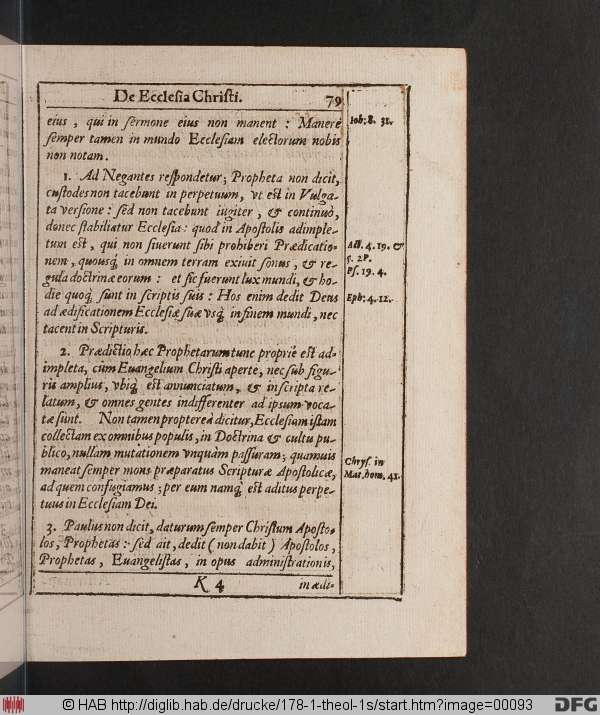 De Ecclesia Christi. 79
eius, qui in sermone eius non manent: Manere
semper tamen in mundo Ecclesiam electorum nobis
non notam.
1. Ad Negantes respondetur; Propheta non dicit,
custodes non tacebunt in perpetuum, vt est in Vulga-
ta versione: sed non tacebunt iugiter, & continuò,
donec stabiliatur Ecclesia: quod in Apostolis adimple-
tum est, qui non siuerunt sibi prohiberi Prædicatio-
nem, quousq; in omnem terram exiuit sonus, & re-
gula doctrinæ eorum: et sic fuerunt lux mundi, & ho-
die quoq; sunt in scriptis suis: Hos enim dedit Deus
ad ædificationem Ecclesiæ suæ vsq; in finem mundi, nec
tacent in Scripturis.
2. Prædictio hæc Prophetarum tunc propriè est ad-
impleta, cùm Euangelium Christi aperte, nec sub figu-
ris amplius, vbiq; est annunciatum, & in scripta re-
latum, & omnes gentes indifferenter ad ipsum voca-
tæ sunt. Non tamen propterea dicitur, Ecclesiam istam
collectam ex omnibus populis, in Doctrina & cultu pu-
blico, nullam mutationem vnquàm passuram; quamuis
maneat semper mons præparatus Scripturæ Apostolicæ,
ad quem confugiamus; per eum namq; est aditus perpe-
tuus in Ecclesiam Dei.
3. Paulus non dicit, daturum semper Christum Aposto-
los, Prophetas: sed ait, dedit (non dabit) Apostolos,
Prophetas, Euangelistas, in opus administrationis,
K 4 in ædi-
Ioh: 8. 31.
Act. 4. 19. &
5. 29.
Ps. 19. 4.
Eph: 4. 12.
Chrys. in
Mat. hom. 41.
© HAB http://diglib.hab.de/drucke/178-1-theol-1s/start.htm?image=00093
DFG